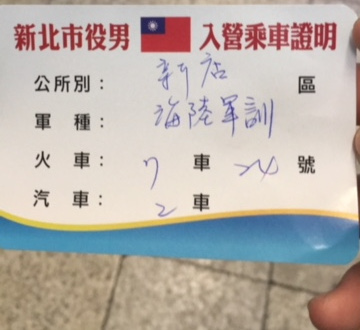 新北市役男 入營乘車證明
公所別： 新店 區
軍種： 海陸軍訓
火車： 7 車 24 號
汽車： 2 車